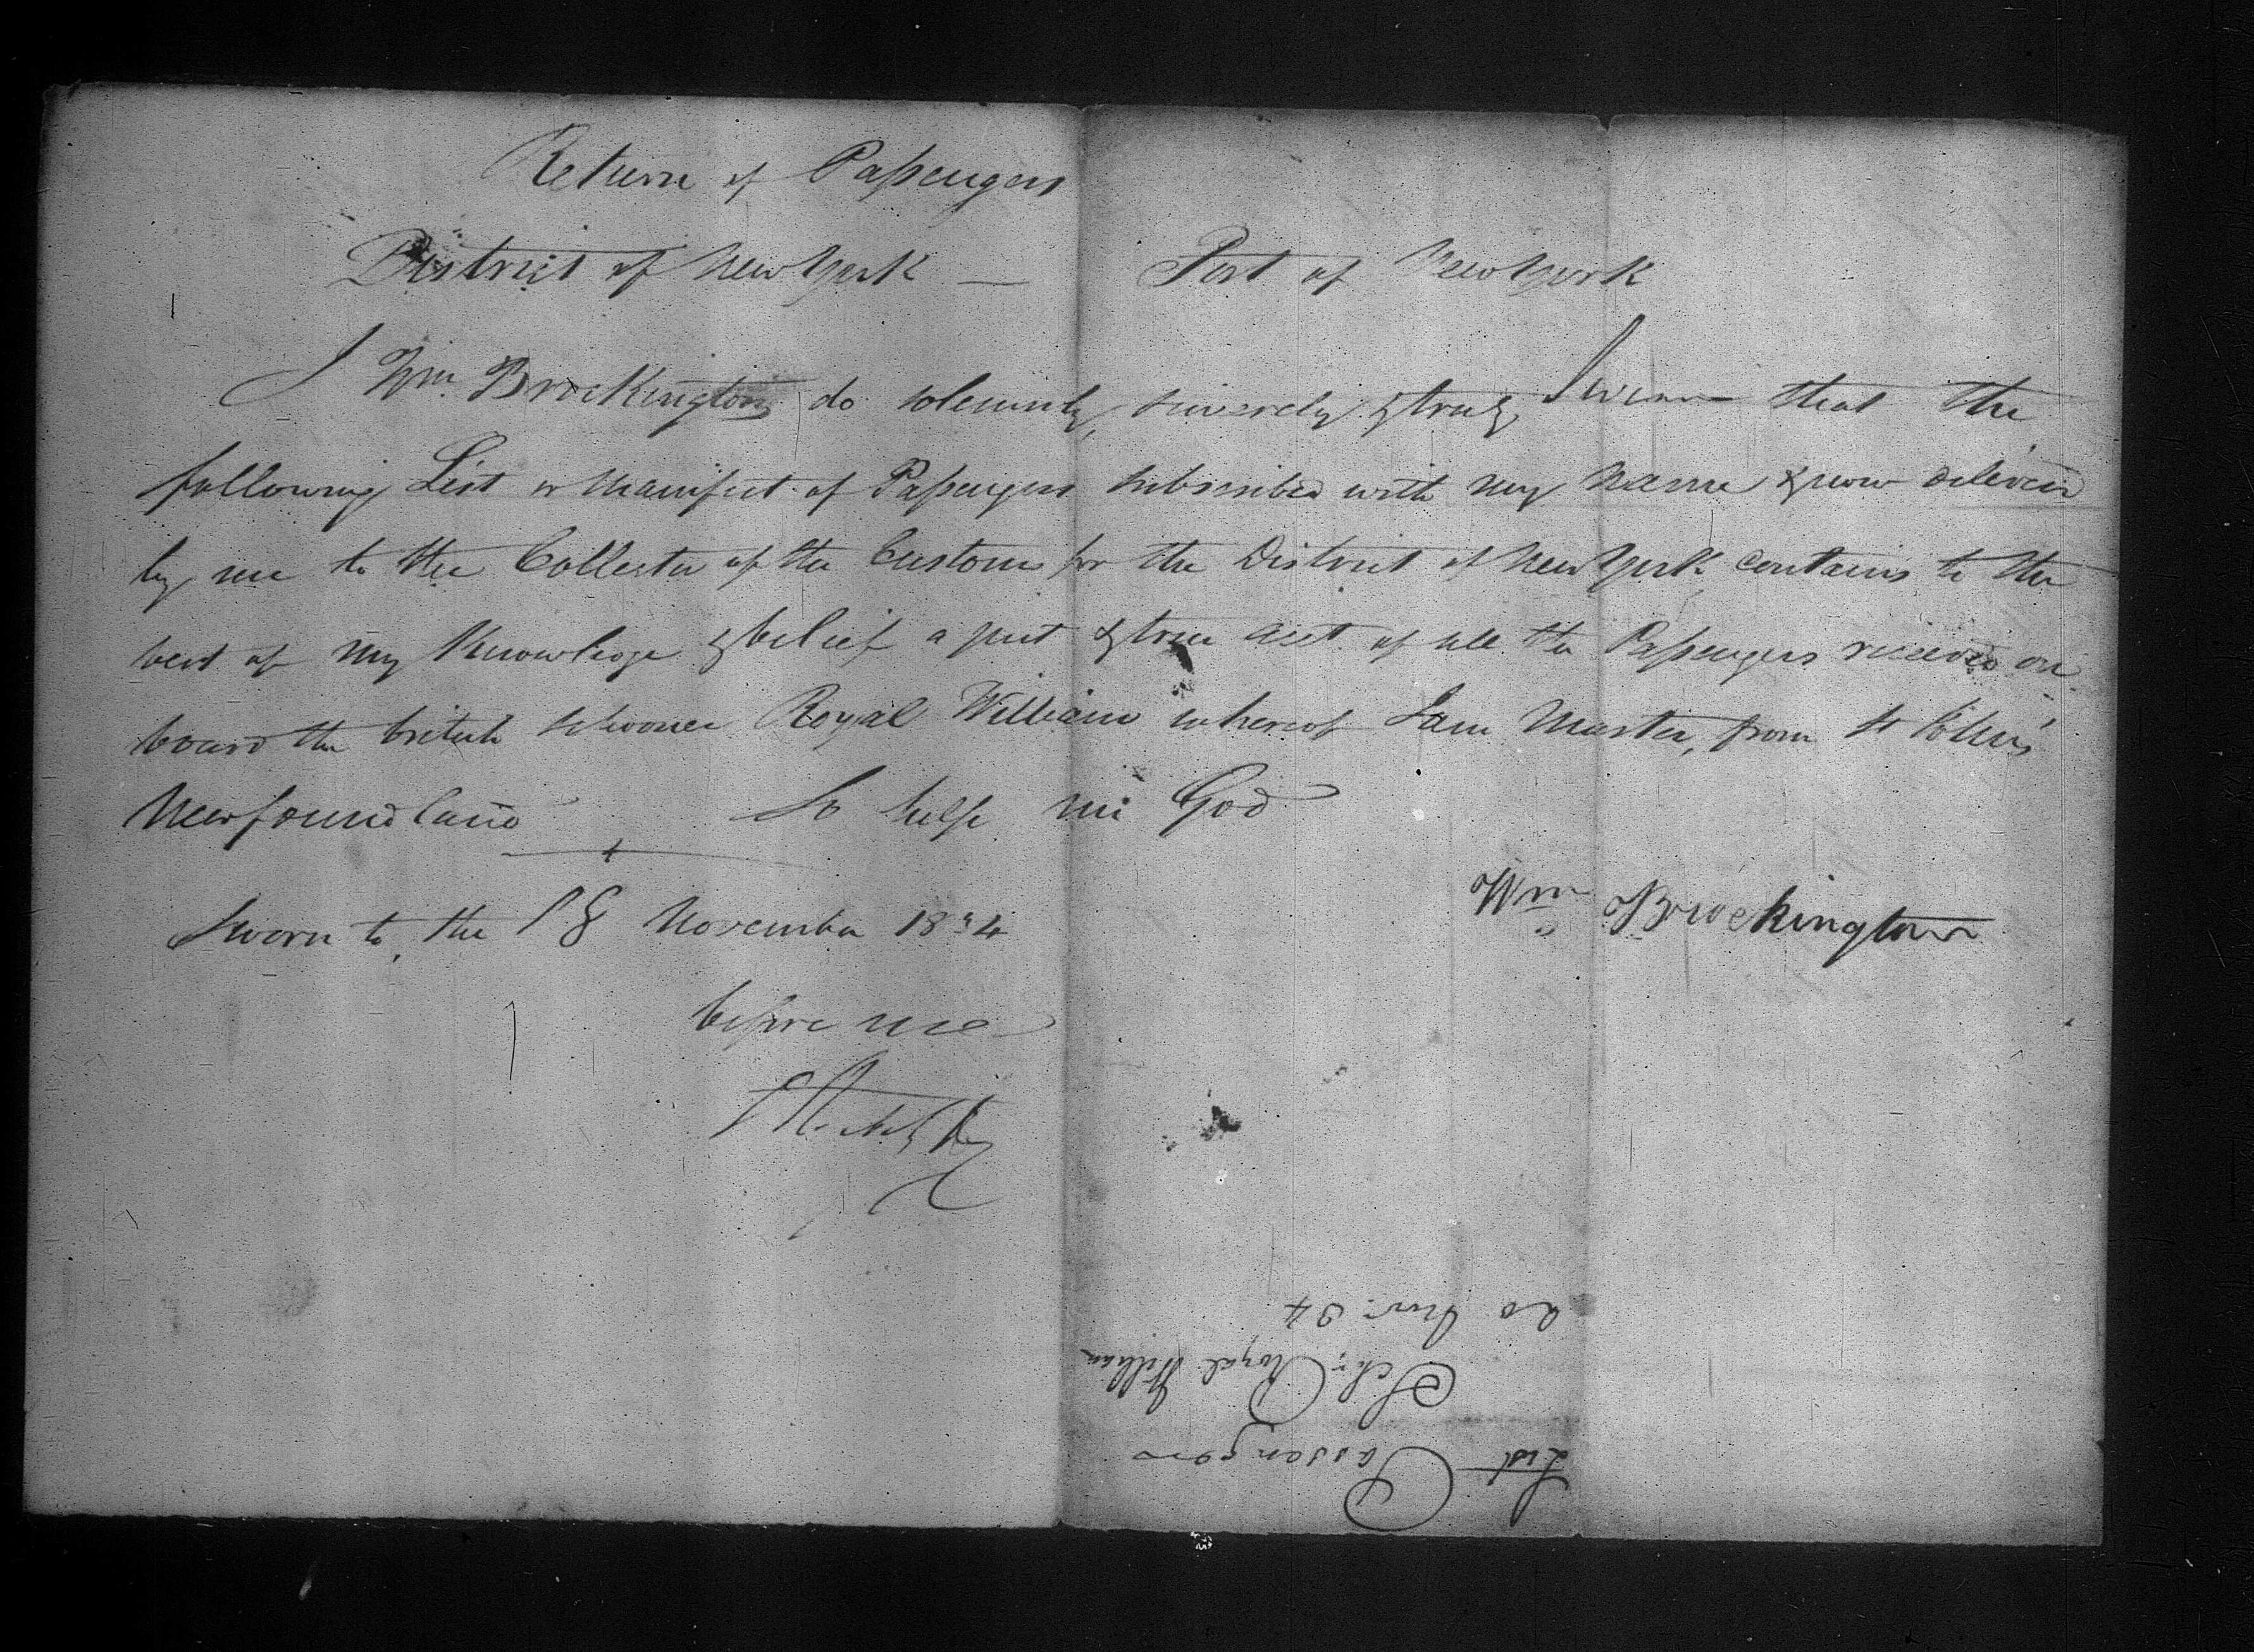 Return of Passengers
District of New York — Port of New York
I Wm. Brockington do solemnly, sincerely & truly Swear that the
following List or Manifest of Passengers subscribed with my name & now delivered
by me to the Collector of the Customs for the District of New York contains to the
best of my Knowledge & belief a just & true acct. of all the Passengers received on
board the british schooner Royal William whereof I am Master, from St John's
Newfoundland So help me God
Wm Brockington
Sworn to, the 18 November 1834
before me
List Passengers
Schr. Royal William
20 Nov. 34